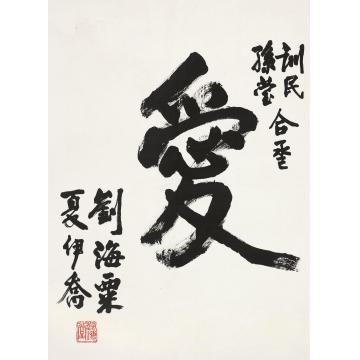 訓民
孫瑩合璧
愛
劉海粟
夏伊喬